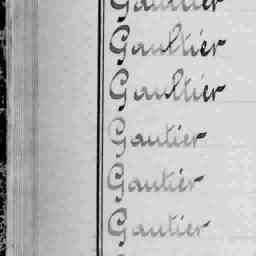 Gaultier
Gaultier
Gaultier
Gautier
Gautier
Gautier